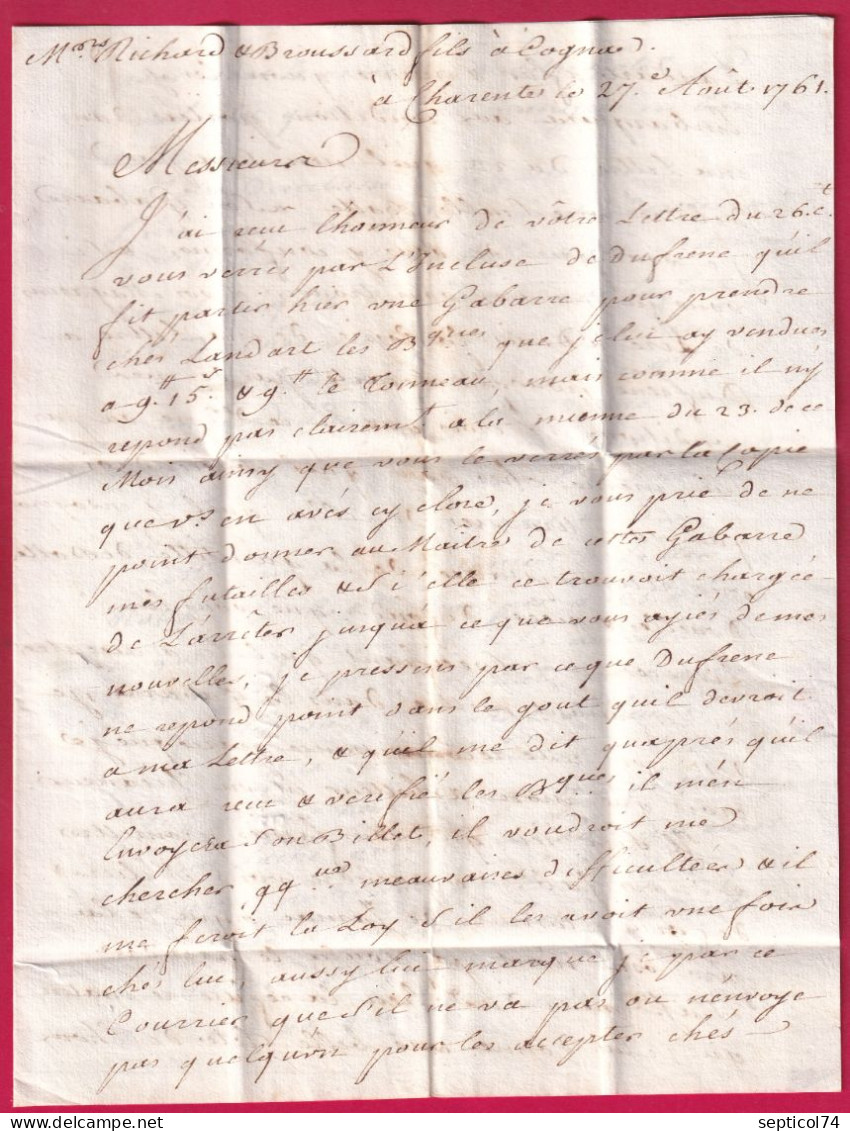 Mrs Richard & Broussard fils à Cognac.
à Charente le 27.e Août 1761.
Messieurs
J'ai reçu l'honneur de vôtre Lettre du 26. Ct
vous verrés par L'Incluse de Dufrene qu'il
fit partir hier une Gabarre pour prendre
chés Landart les Bques que je lui ay vendues
a 9.tt 15.s & 9.tt le Tonneau, mais comme il n'y
repond pas clairemt a la mienne du 23. de ce
Mois ainsy que vous le verrés par la Copie
que vs en avés cy close, je vous prie de ne
point donner au Maitre de cette Gabarre
mes futailles & S'i elle ce trouvoit chargée
de L'arrêter jusqu'a ce que vous ayiés de mes
nouvelles, je pressens par ce que Dufrene
ne repond point dans le gout qu'il devroit
a ma Lettre, & qu'il me dit qu'aprés qu'il
aura reçu & verifié les Bques il m'en
Envoyera Son Billet, il voudroit me
chercher qques meauvaises difficultées & il
me feroit la Loy S'il les avoit une fois
chés lui, aussy lui marque je par ce
Courrier que S'il ne va pas ou n'envoye
pas quelqu'un pour les accepter chés
septicol74